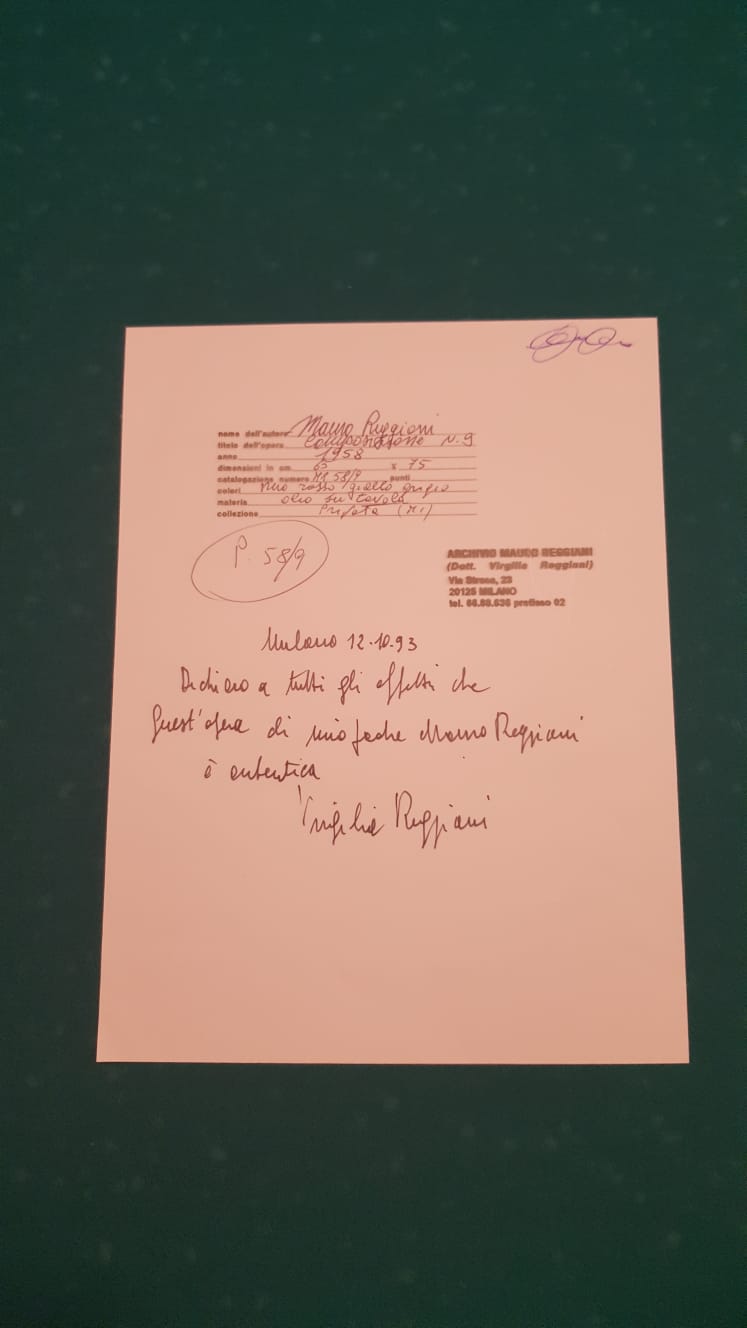 nome dell'autore Mauro Reggiani
titolo dell'opera Composizione N. 9
anno 1958
dimensioni in cm. 65 x 75
catalogazione numero MR 58/9 punti
colori nero rosso giallo grigio
materia olio su tavola
collezione Privata (MI)
P. 58/9
ARCHIVIO MAURO REGGIANI
(Dott. Virgilio Reggiani)
Via Stresa, 23
20125 MILANO
tel. 66.88.636 prefisso 02
Milano 12.10.93
Dichiaro a tutti gli effetti che
quest'opera di mio padre Mauro Reggiani
è autentica
Virgilio Reggiani